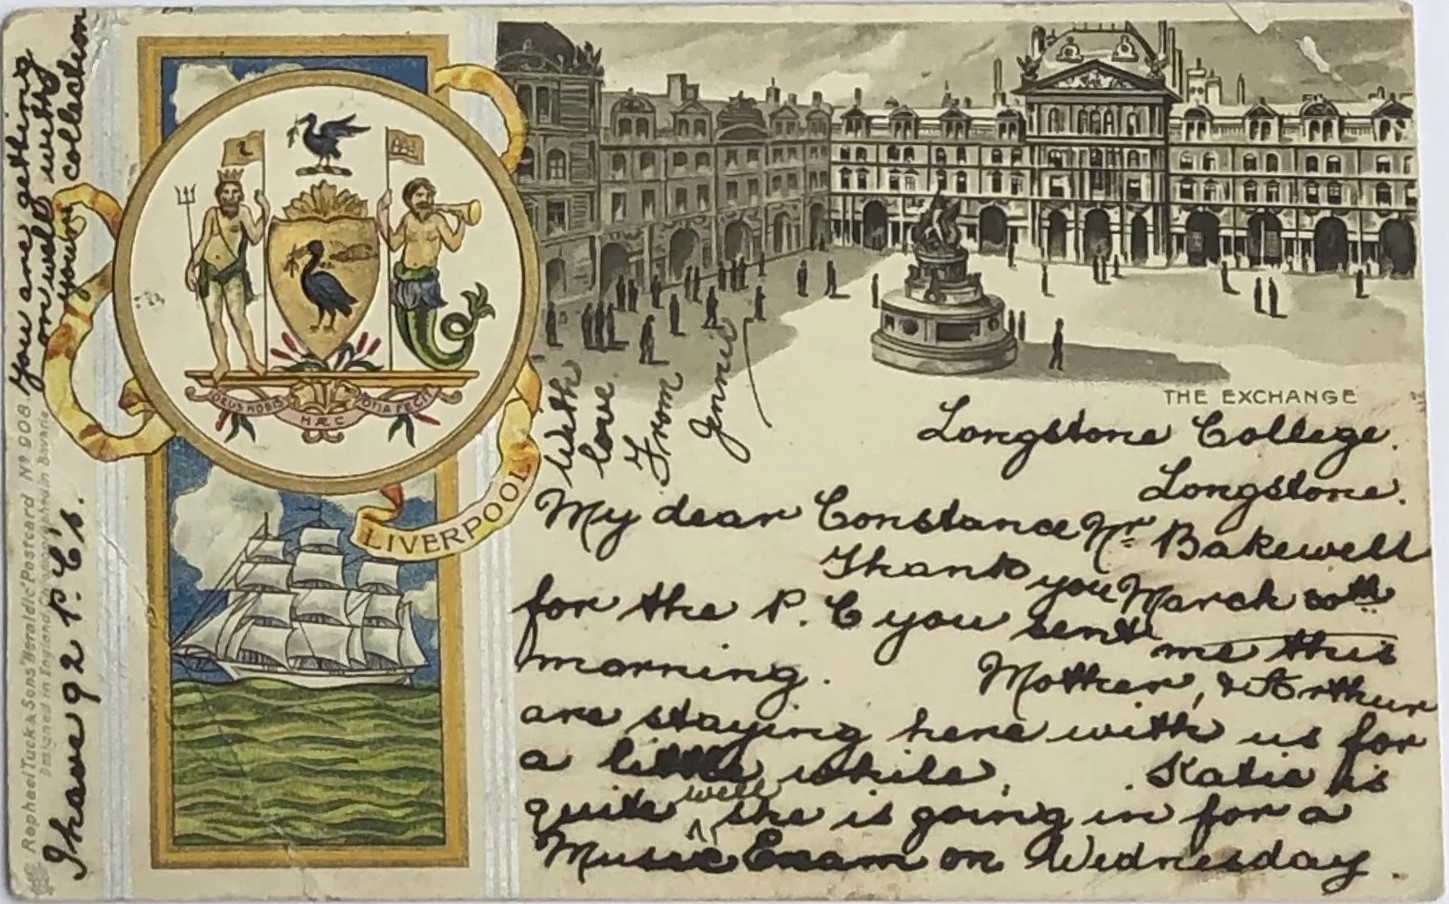 THE EXCHANGE
Longstone College.
Longstone.
Nr Bakewell
March
My dear Constance
Thank you
for the P. C you sent me this
morning. Mother, & Arthur
are staying here with us for
a little while, Katie is
quite well she is going in for a
Music Exam on Wednesday.
With
love
From
You are getting
on well with
your collection
I have 92 P.C's.
DEUS NOBIS HÆC OTIA FECIT
LIVERPOOL
Raphael Tuck & Sons "Heraldic" Postcard Nº 908
Designed in England in Bavaria